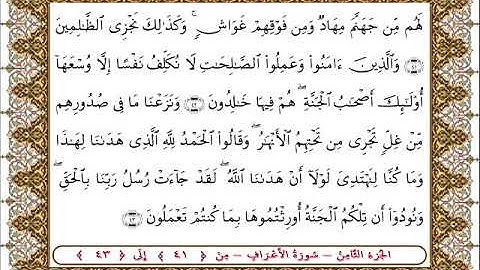 لَهُم مِّن جَهَنَّمَ مِهَادٌ وَمِن فَوْقِهِمْ غَوَاشٍ ۚ وَكَذَٰلِكَ نَجْزِى ٱلظَّـٰلِمِينَ
﴿٤١﴾ وَٱلَّذِينَ ءَامَنُوا۟ وَعَمِلُوا۟ ٱلصَّـٰلِحَـٰتِ لَا نُكَلِّفُ نَفْسًا إِلَّا وُسْعَهَآ
أُو۟لَـٰٓئِكَ أَصْحَـٰبُ ٱلْجَنَّةِ ۖ هُمْ فِيهَا خَـٰلِدُونَ ﴿٤٢﴾ وَنَزَعْنَا مَا فِى صُدُورِهِم
مِّنْ غِلٍّ تَجْرِى مِن تَحْتِهِمُ ٱلْأَنْهَـٰرُ ۖ وَقَالُوا۟ ٱلْحَمْدُ لِلَّهِ ٱلَّذِى هَدَىٰنَا لِهَـٰذَا
وَمَا كُنَّا لِنَهْتَدِىَ لَوْلَآ أَنْ هَدَىٰنَا ٱللَّهُ ۖ لَقَدْ جَآءَتْ رُسُلُ رَبِّنَا بِٱلْحَقِّ ۖ
وَنُودُوٓا۟ أَن تِلْكُمُ ٱلْجَنَّةُ أُورِثْتُمُوهَا بِمَا كُنتُمْ تَعْمَلُونَ ﴿٤٣﴾
الجزء الثامن – سورة الأعراف – من ﴿ ٤١ ﴾ إلى ﴿ ٤٣ ﴾